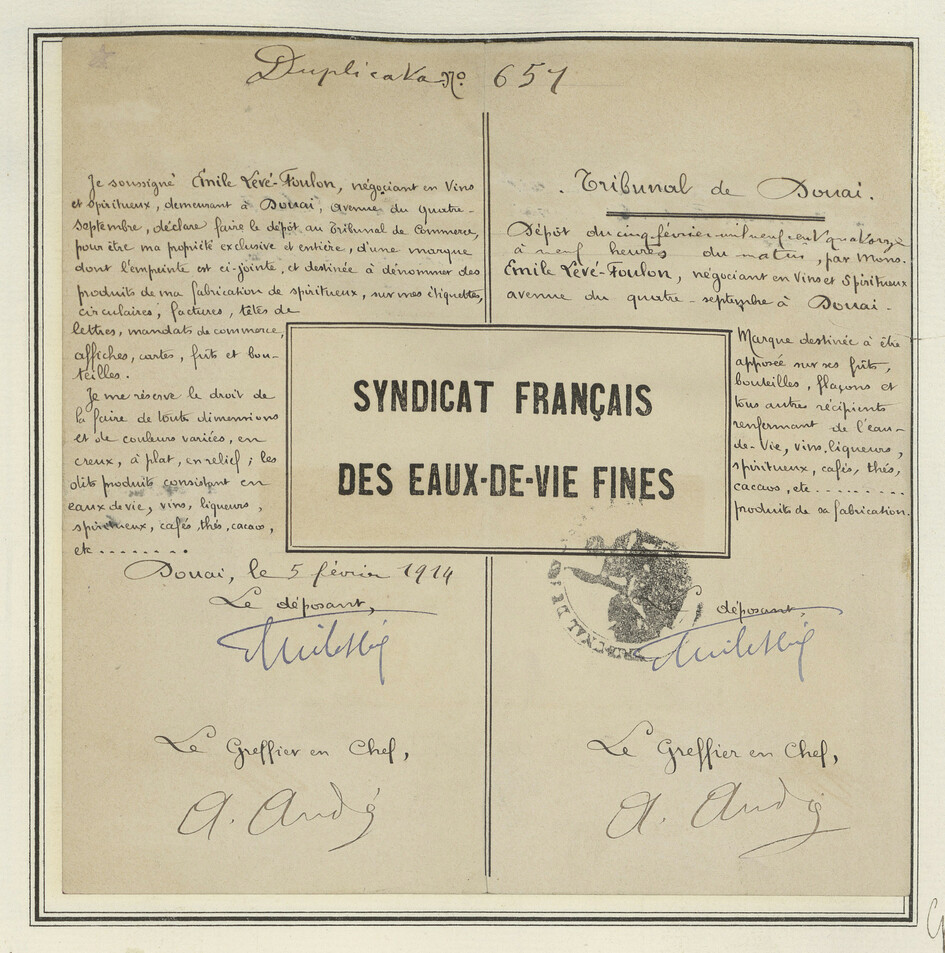 Duplicata No. 651
Je soussigné Émile Lévé-Foulon, négociant en Vins
et Spiritueux, demeurant à Douai, avenue du quatre-
septembre, déclare faire le dépôt au Tribunal de Commerce,
pour être ma propriété exclusive et entière, d'une marque
dont l'empeinte est ci-jointe, et destinée à dénommer des
produits de ma fabrication de spiritueux, sur mes étiquettes,
circulaires, factures, têtes de
lettres, mandats de commerce,
affiches, cartes, fûts et bou-
teilles.
Je me réserve le droit de
la faire de toute dimensions
et de couleurs variées, en
creux, à plat, en relief; les
dits produits consistant en
eaux de vie, vins, liqueurs,
spiritueux, cafés, thés, cacaos,
etc........
Douai, le 5 février 1914
Le déposant,
Le Greffier en Chef,
A. André
Tribunal de Douai.
Dépôt du cinq février mil neuf cent quatorze
à neuf heures du matin, par Mons.
Émile Lévé-Foulon, négociant en Vins et Spiritueux
avenue du quatre-septembre à Douai.
SYNDICAT FRANÇAIS
DES EAUX-DE-VIE FINES
Marque destinée à être
apposée sur ses fûts,
bouteilles, flaçons et
tous autres récipients
renfermant de l'eau-
de-Vie, vins, liqueurs,
spiritueux, cafés, thés,
cacaos, etc.........
produits de sa fabrication.
déposant,
Le Greffier en Chef,
A. André